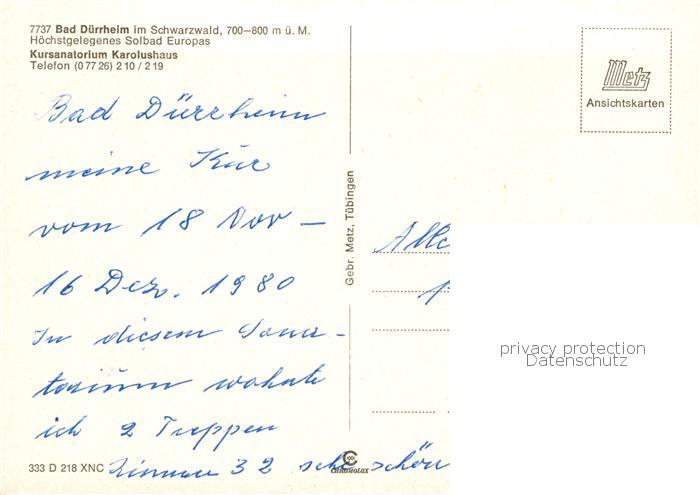 7737 Bad Dürrheim im Schwarzwald, 700–800 m ü. M.
Höchstgelegenes Solbad Europas
Kursanatorium Karolushaus
Telefon (0 77 26) 2 10 / 2 19
Metz
Ansichtskarten
Bad Dürrheim
meine Kur
vom 18 Nov –
16 Dez. 1980
In diesem Sana-
torium wohnte
ich 2 Treppen
Zimmer 32 sehr schön
Gebr. Metz, Tübingen
privacy protection
Datenschutz
333 D 218 XNC
CHROMOLUX